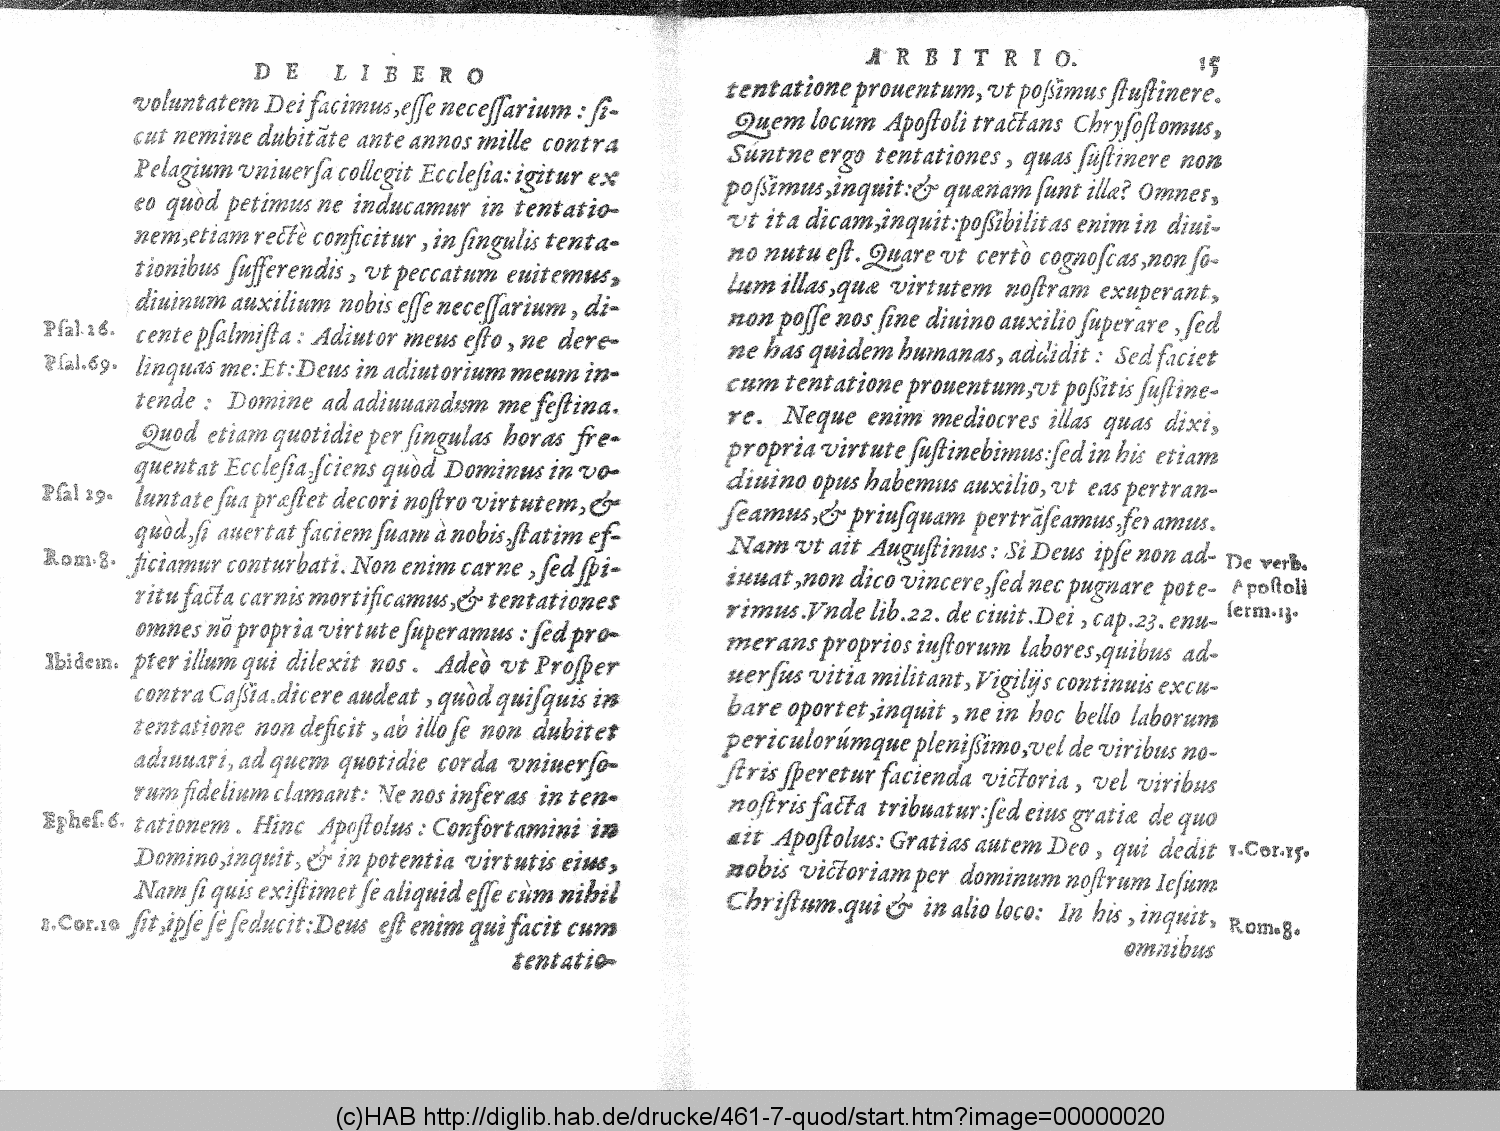 DE LIBERO
voluntatem Dei facimus, eſſe neceſſarium : ſi-
cut nemine dubitāte ante annos mille contra
Pelagium vniuerſa collegit Eccleſia: igitur ex
eo quòd petimus ne inducamur in tentatio-
nem, etiam rectè conficitur, in ſingulis tenta-
tionibus ſufferendis, vt peccatum euitemus,
diuinum auxilium nobis eſſe neceſſarium, di-
Pſal.16. cente pſalmiſta : Adiutor meus eſto, ne dere-
Pſal.69. linquas me: Et: Deus in adiutorium meum in-
tende : Domine ad adiuuandum me feſtina.
Quod etiam quotidie per ſingulas horas fre-
quentat Eccleſia, ſciens quòd Dominus in vo-
Pſal 29. luntate ſua præſtet decori noſtro virtutem, &
quòd, ſi auertat faciem ſuam à nobis, ſtatim ef-
Rom.8. ficiamur conturbati. Non enim carne, ſed ſpi-
ritu facta carnis mortificamus, & tentationes
omnes nō propria virtute ſuperamus : ſed pro-
Ibidem. pter illum qui dilexit nos. Adeò vt Proſper
contra Caſſia.dicere audeat, quòd quiſquis in
tentatione non deficit, ab illo ſe non dubitet
adiuuari, ad quem quotidie corda vniuerſo-
rum fidelium clamant: Ne nos inferas in ten-
Epheſ.6. tationem. Hinc Apoſtolus: Confortamini in
Domino, inquit, & in potentia virtutis eius,
Nam ſi quis exiſtimet ſe aliquid eſſe cùm nihil
1.Cor.10 ſit, ipſe ſe ſeducit: Deus eſt enim qui facit cum
tentatio-
ARBITRIO. 15
tentatione prouentum, vt poſſimus ſtuſtinere.
Quem locum Apoſtoli tractans Chryſoſtomus,
Súntne ergo tentationes, quas ſuſtinere non
poſſimus, inquit: & quænam ſunt illæ? Omnes,
vt ita dicam, inquit: poſſibilitas enim in diui-
no nutu eſt. Quare vt certò cognoſcas, non ſo-
lum illas, quæ virtutem noſtram exuperant,
non poſſe nos ſine diuino auxilio ſuperare, ſed
ne has quidem humanas, addidit : Sed faciet
cum tentatione prouentum, vt poſſitis ſuſtine-
re. Neque enim mediocres illas quas dixi,
propria virtute ſuſtinebimus: ſed in his etiam
diuino opus habemus auxilio, vt eas pertran-
ſeamus, & priuſquam pertrāſeamus, feramus.
Nam vt ait Auguſtinus: Si Deus ipſe non ad- De verb.
iuuat, non dico vincere, ſed nec pugnare pote- Apoſtoli
rimus. Vnde lib.22. de ciuit.Dei, cap.23. enu- ſerm.13.
merans proprios iuſtorum labores, quibus ad-
uerſus vitia militant, Vigilijs continuis excu-
bare oportet, inquit, ne in hoc bello laborum
periculorúmque pleniſſimo, vel de viribus no-
ſtris ſperetur facienda victoria, vel viribus
noſtris facta tribuatur: ſed eius gratiæ de quo
ait Apoſtolus: Gratias autem Deo, qui dedit 1.Cor.15.
nobis victoriam per dominum noſtrum Ieſum
Chriſtum. qui & in alio loco: In his, inquit, Rom.8.
omnibus
(c)HAB http://diglib.hab.de/drucke/461-7-quod/start.htm?image=00000020